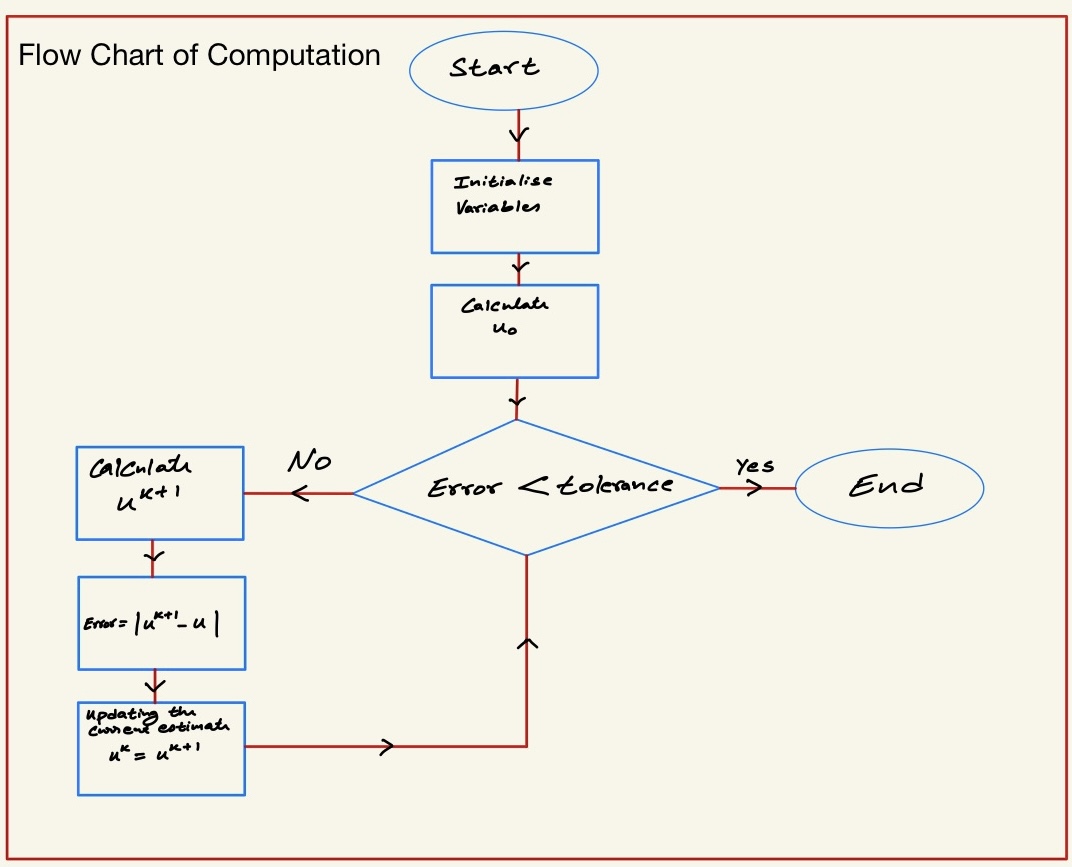 Flow Chart of Computation
Start
Initialise
Variables
Calculate
u₀
Error < tolerance
Yes
End
No
Calculate
u^{k+1}
Error = |u^{k+1} - u|
Updating the
current estimate
u^k = u^{k+1}